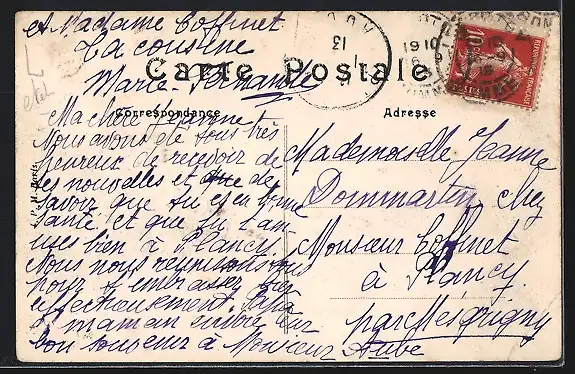 et Madame Coffinet
La cousine
Marie-Fernande
Carte Postale
Correspondance
Adresse
Ma chère Jeanne
Nous avons été tous très
heureux de recevoir de
tes nouvelles et de
savoir que tu es en bonne
santé et que tu t'am
uses bien à Plancy.
Nous nous réunissons tous
pour t'embrasser bien
affectueusement. Papa
et maman envoie leur
bon souvenir à Monsieur
Mademoiselle Jeanne
Dommartin chez
Monsieur Coffinet
à Plancy
par Mesgrigny
Aube